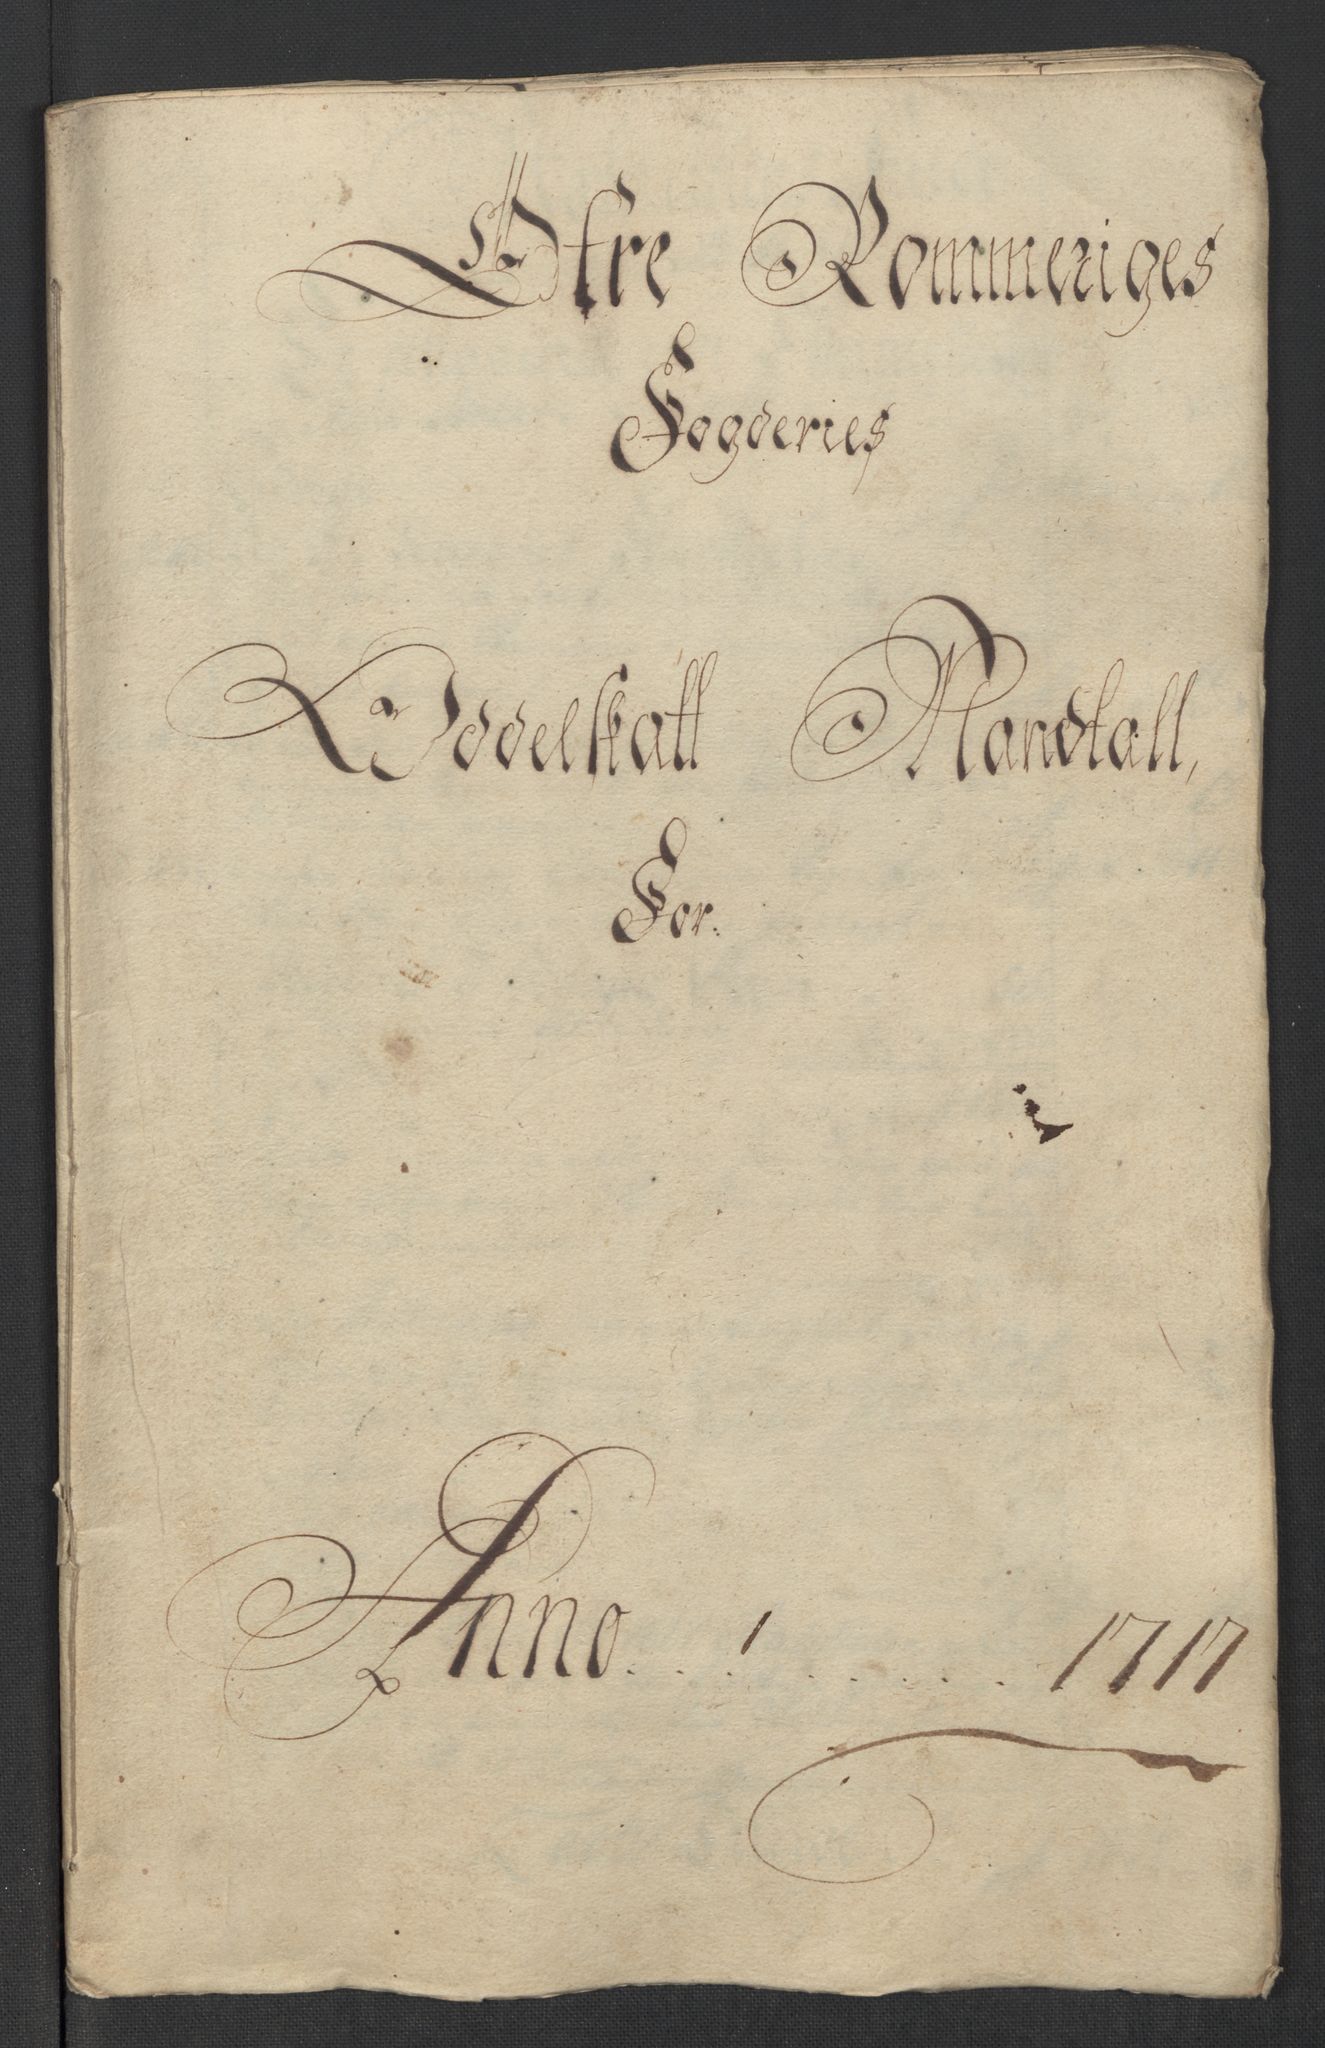 Øfre Rommeriges
Fogderies
Oddelskatt Mandtall,
For.
Anno . . . . . . . . . 1717